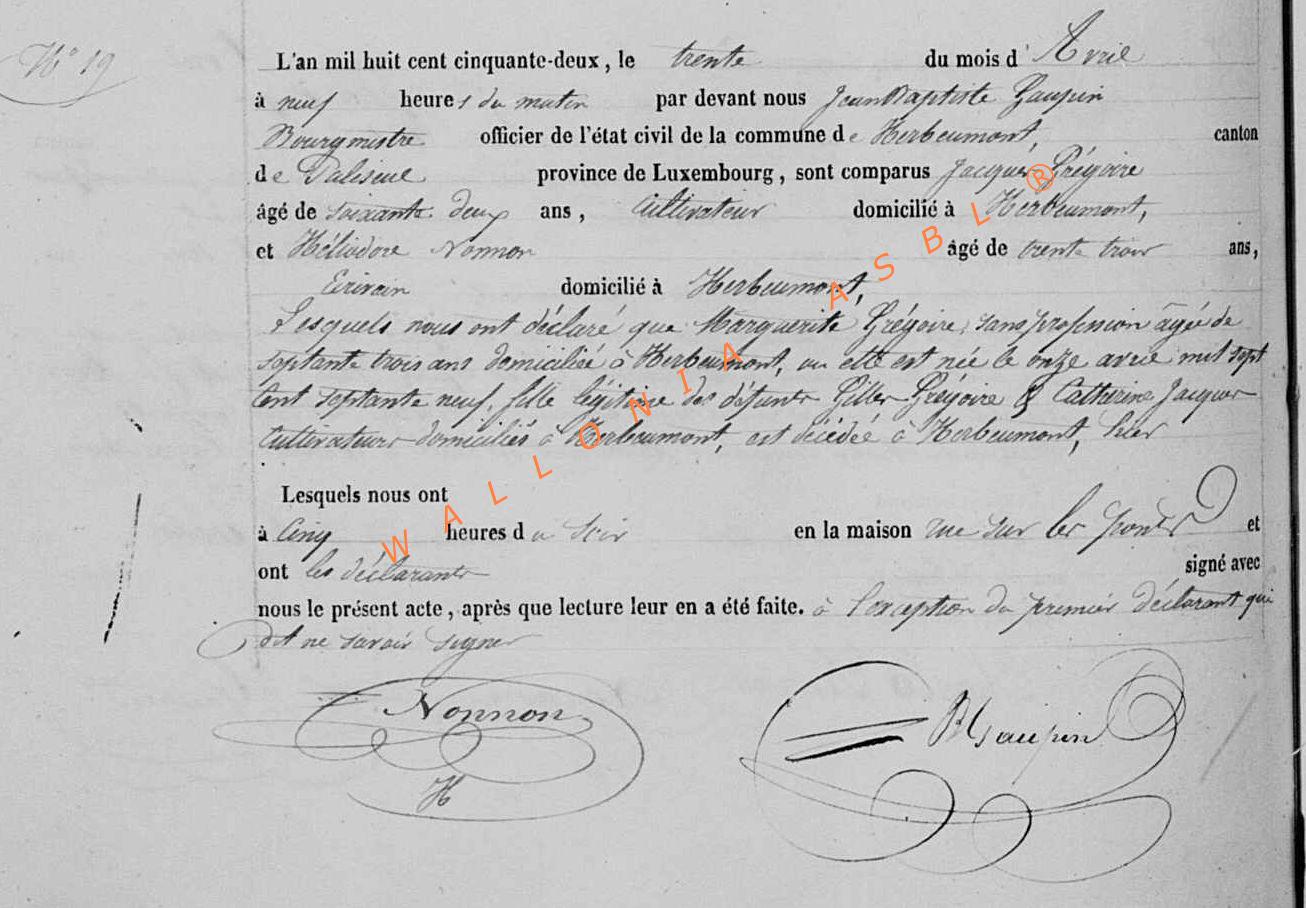 N° 19
L'an mil huit cent cinquante-deux, le trente du mois d'Avril
à neuf heures du matin par devant nous Jean Baptiste Gaupin
Bourgmestre officier de l'état civil de la commune de Herbeumont, canton
de Paliseul province de Luxembourg, sont comparus Jacques Grégoire
âgé de soixante deux ans, Cultivateur domicilié à Herbeumont,
et Héliodore Nonnon âgé de trente trois ans,
Ecrivain domicilié à Herbeumont,
Lesquels nous ont déclaré que Marguerite Grégoire, sans profession âgée de
septante trois ans domiciliée à Herbeumont, ou elle est née le onze avril mil sept
cent septante neuf, fille légitime des défunts Gilles Grégoire & Catherine Jacques
Cultivateurs domiciliés à Herbeumont, est décédée à Herbeumont, hier
Lesquels nous ont
à cinq heures du soir en la maison rue sur les ponts et
ont les déclarants signé avec
nous le présent acte, après que lecture leur en a été faite. à l'exception du premier déclarant qui
dit ne savoir signer
Nonnon
H
Gaupin
WALLONIA ASBL ®